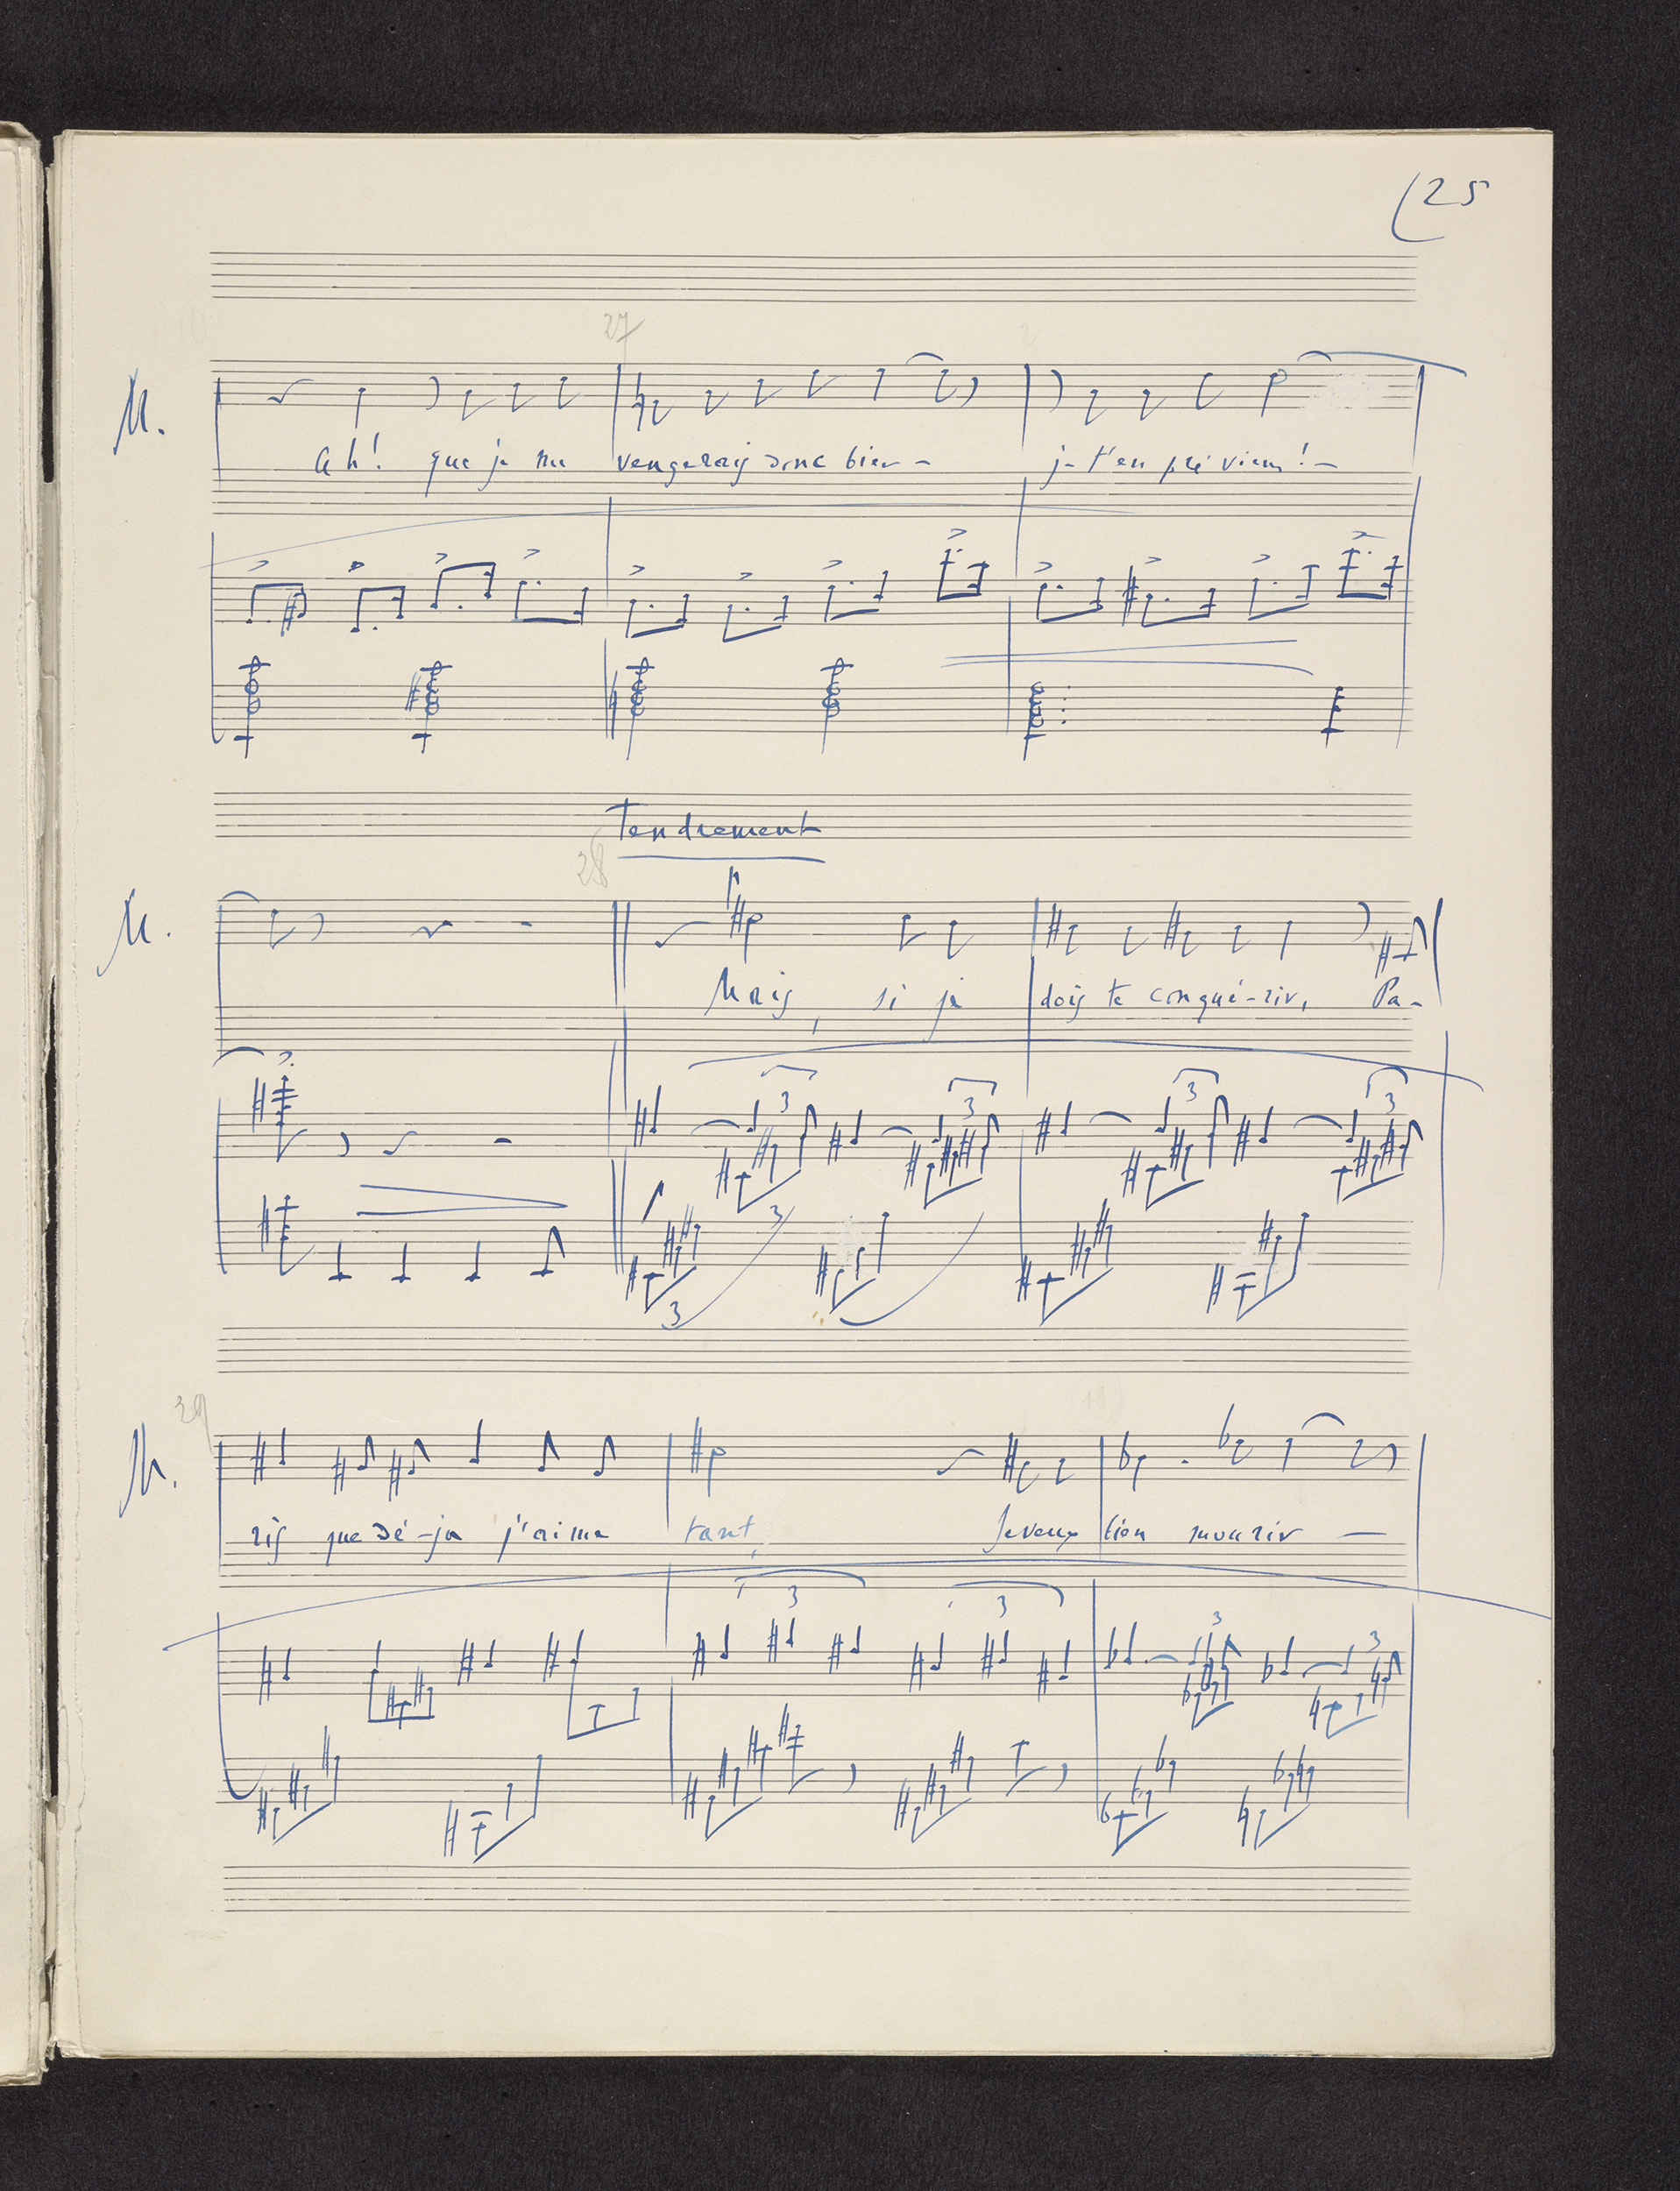 25
27
M.
Ah! que je me vengerais donc bien - je t'en préviens! -
Tendrement
28
M.
Mais, si je dois te conqué-rir, Pa-
3 3 3 3
3
3
29
M.
ris que dé-jà j'aime tant, Je veux bien mourir -
3 3 3 3